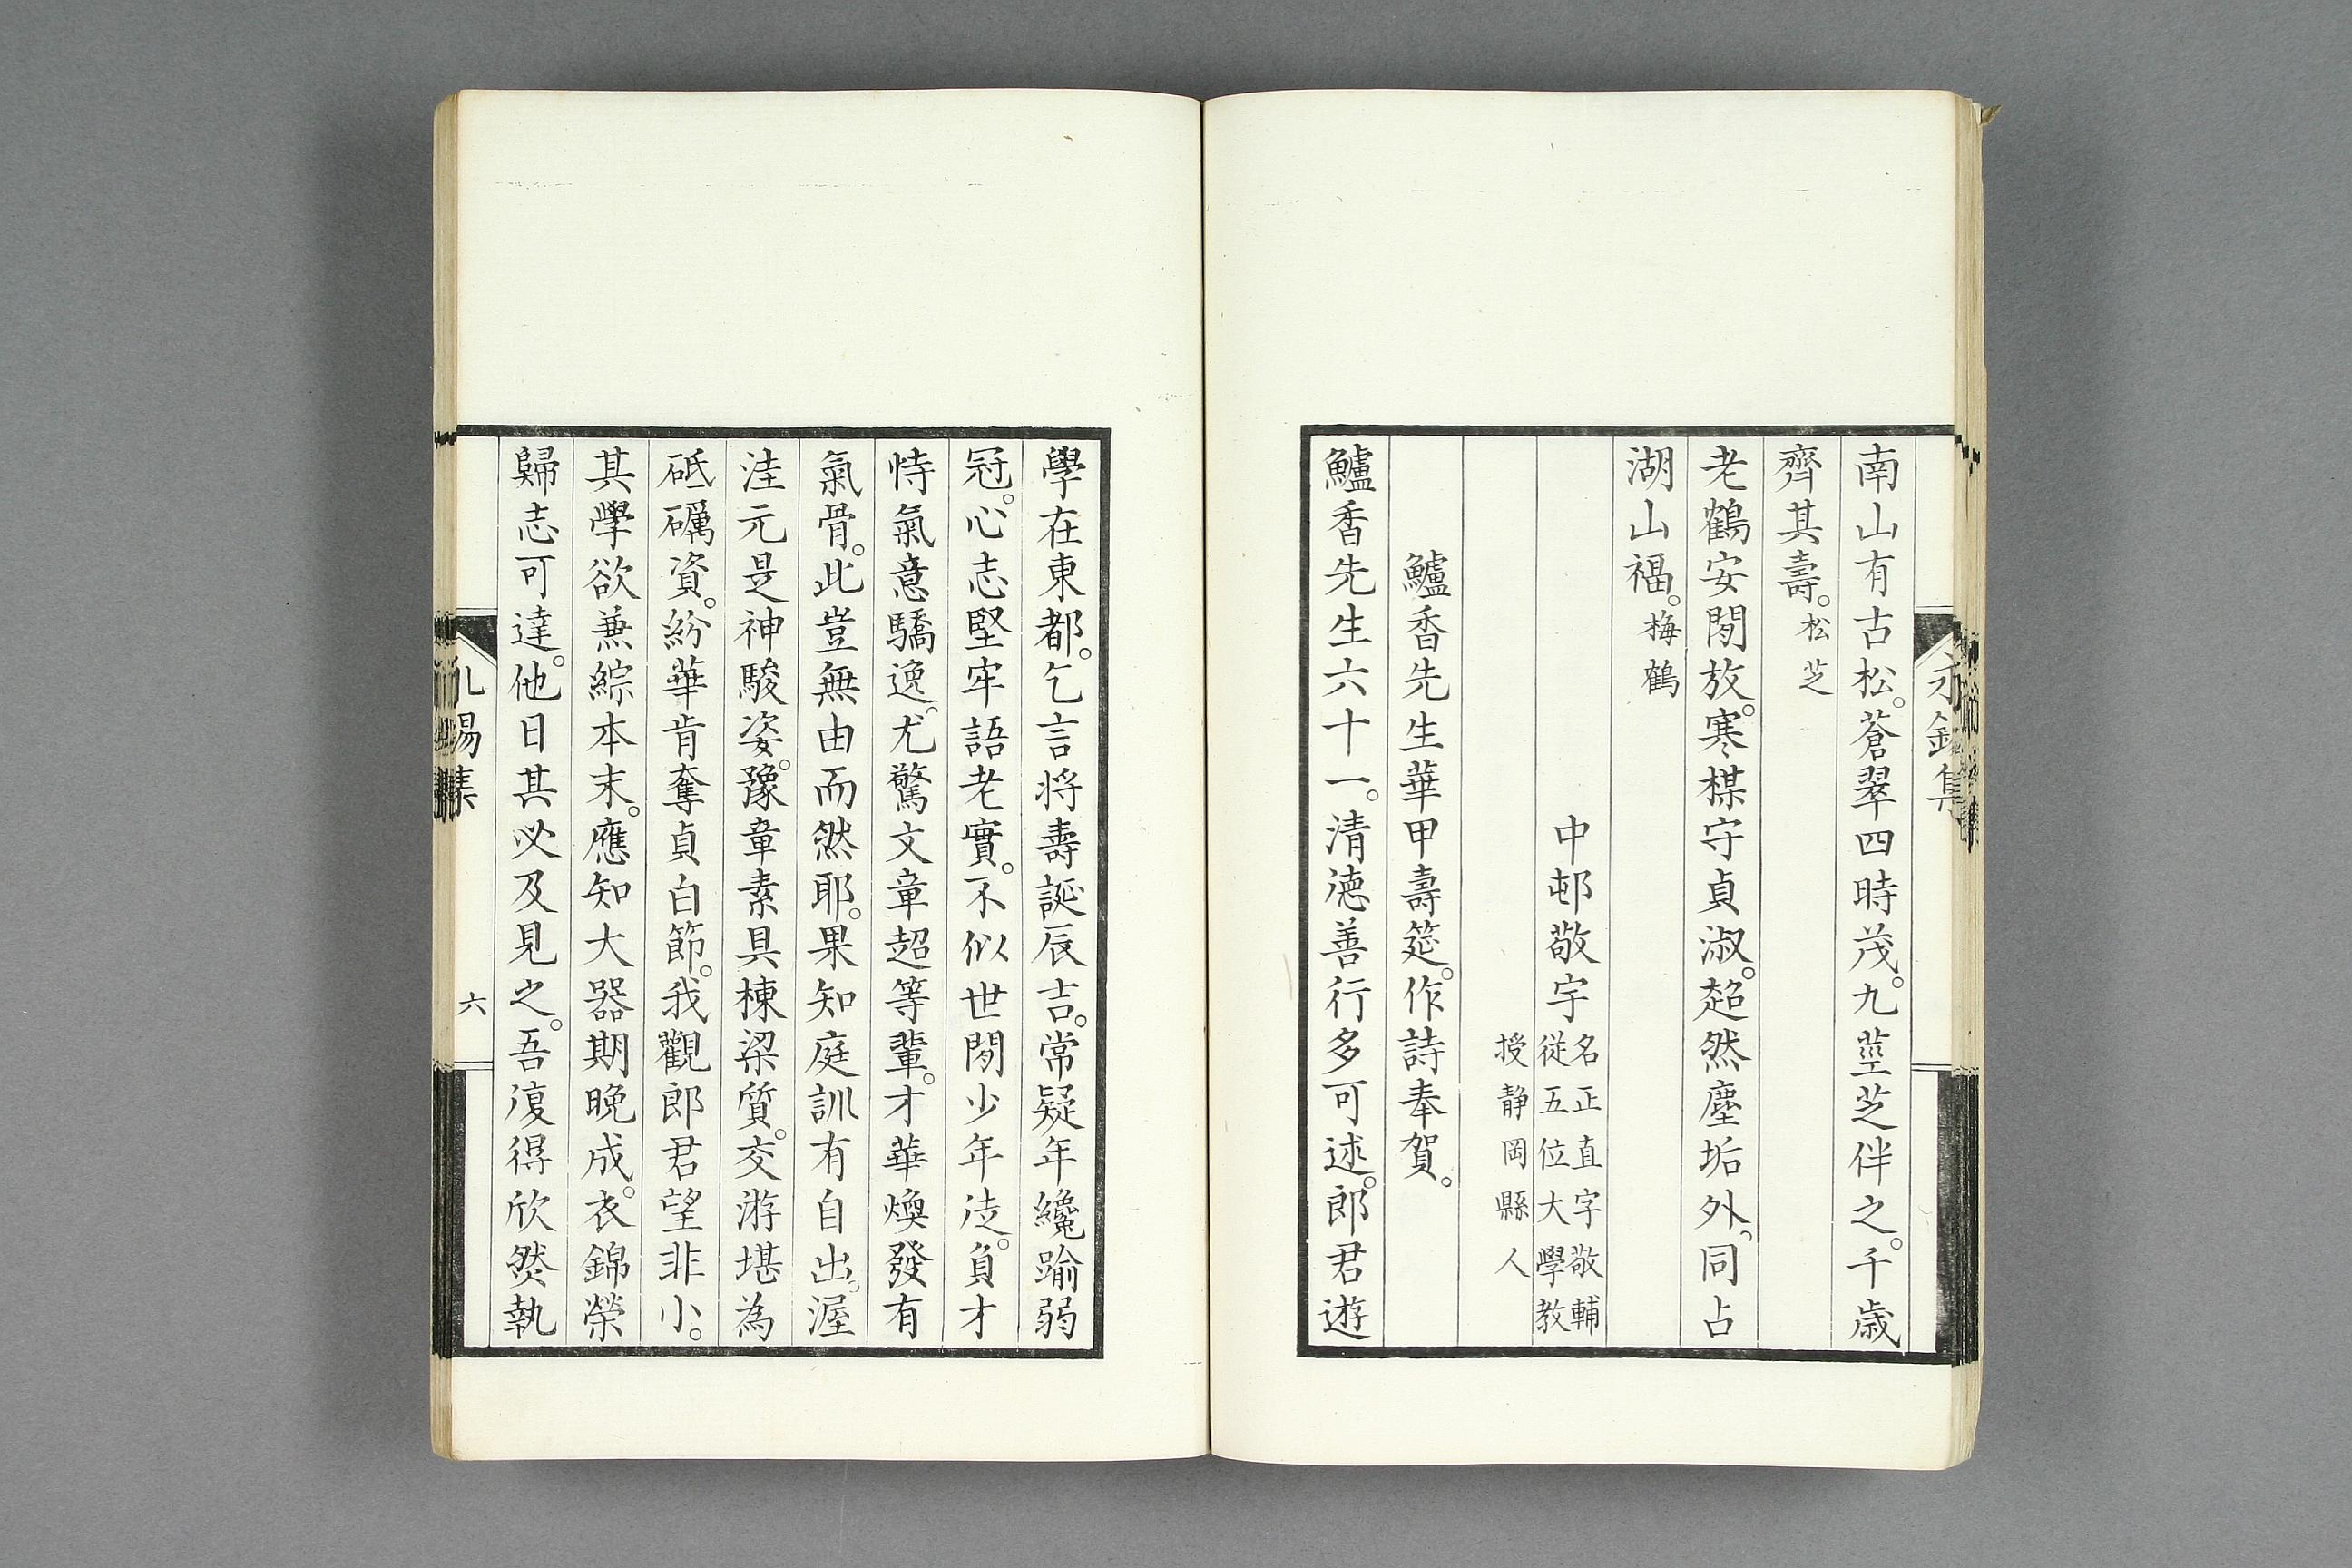 南山有古松。蒼翠四時茂。九莖芝伴之。千歳
齊其壽。松芝
老鶴安閒放。寒楳守貞淑。超然塵垢外。同占
湖山福。梅鶴
中邨敬宇
名正直字敬輔
從五位大學教
授静岡縣人
鱸香先生華甲壽筵。作詩奉賀。
鱸香先生六十一。清德善行多可述。郎君遊
學在東都。乞言将壽誕辰吉。常疑年纔踰弱
冠。心志堅牢語老實。不似世閒少年徒。負才
恃氣意驕逸。尤驚文章超等輩。才華煥發有
氣骨。此豈無由而然耶。果知庭訓有自出。渥
洼元是神駿姿。豫章素具棟梁質。交游堪為
砥礪資。紛華肯奪貞白節。我觀郎君望非小。
其學欲兼綜本末。應知大器期晩成。衣錦榮
歸志可達。他日其必及見之。吾復得欣然執
六